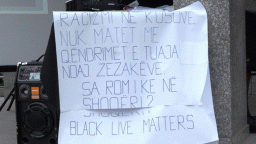 RACIZMI NË KOSOVË
NUK MATET ME
QËNDRIMET E TUAJA
NDAJ ZEZAKËVE,
SA ROM I KE NË
SHOQËRI?
BLACK LIVE MATTERS